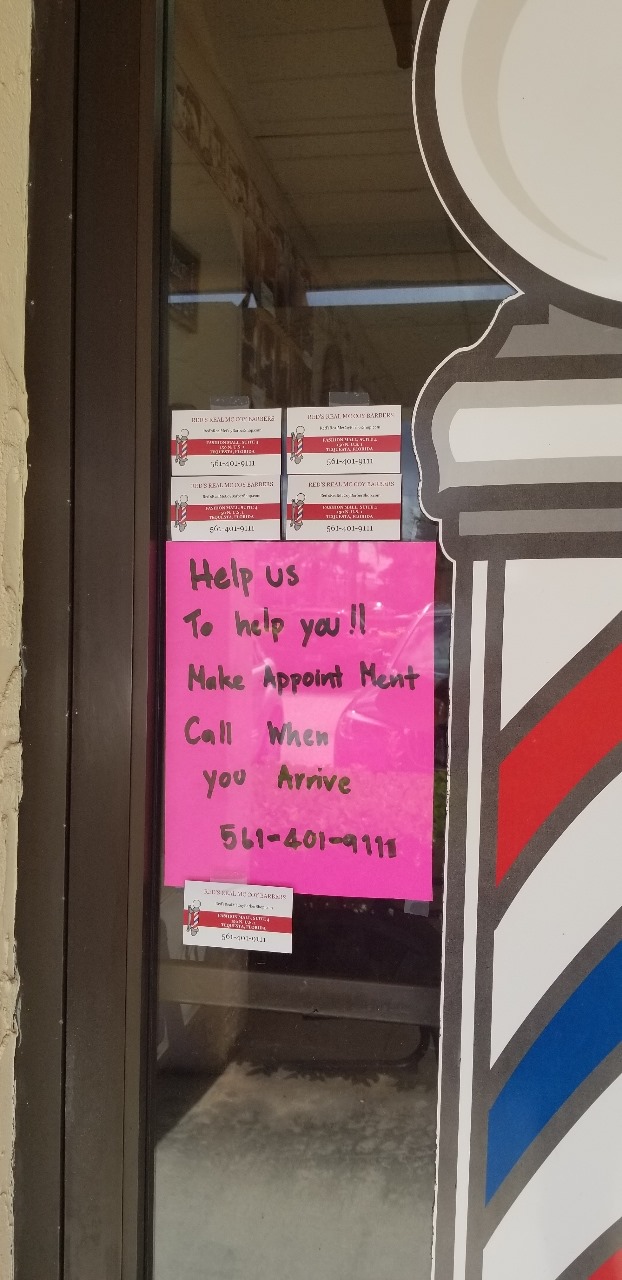 RED'S REAL MCCOY BARBERS
FASHION MALL, SUITE
TEQUESTA, FLORIDA
561-401-9111
RED'S REAL MCCOY BARBERS
FASHION MALL, SUITE
TEQUESTA, FLORIDA
561-401-9111
RED'S REAL MCCOY BARBERS
FASHION MALL, SUITE
TEQUESTA, FLORIDA
561-401-9111
RED'S REAL MCCOY BARBERS
FASHION MALL, SUITE
TEQUESTA, FLORIDA
561-401-9111
Help us
To help you!!
Make Appoint Ment
Call When
you Arrive
561-401-9111
RED'S REAL MCCOY BARBERS
FASHION MALL, SUITE
TEQUESTA, FLORIDA
561-401-9111